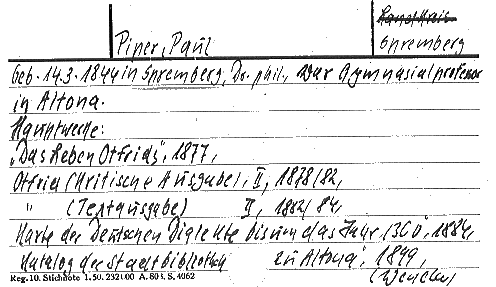 Piper, Paul
Landkreis
Spremberg
geb. 14.3.1844 in Spremberg, Dr. phil., war Gymnasialprofessor
in Altona.
Hauptwerke:
"Das Leben Otfrids", 1877,
Otfrid (Kritische Ausgabe), II, 1878/82,
" (Textausgabe) II, 1882/84,
Karte der Deutschen Dialekte bis um das Jahr 1300", 1884,
Katalog der Stadtbibliothek zu Altona", 1899,
Reg. 10. Stichnote 1. 50. 2321 00 A. 803. S. 4062